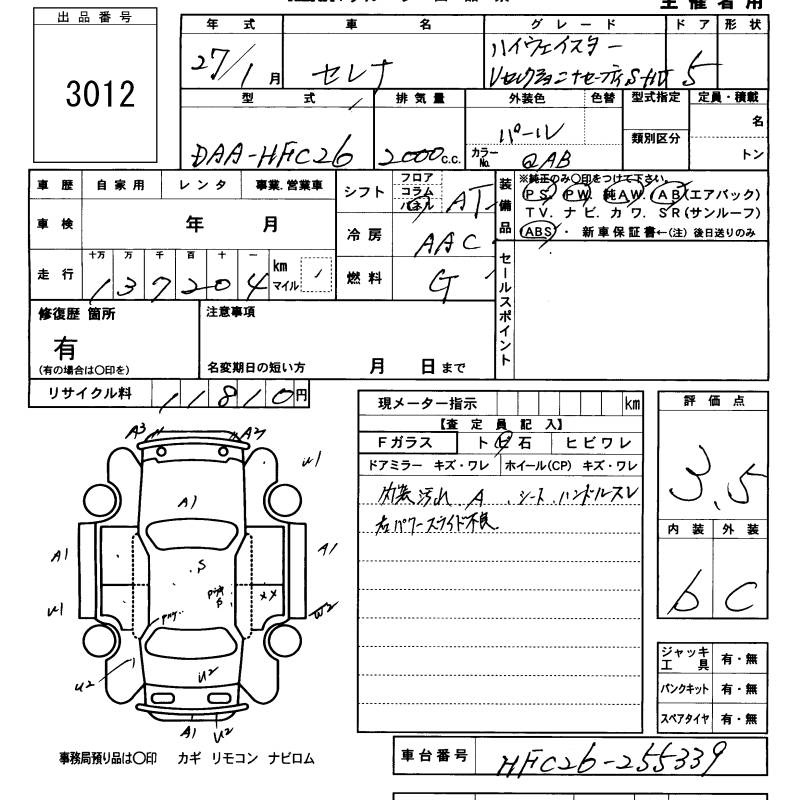 主催者用
出品番号
3012
年式 車名 グレード ドア 形状
27/1月 セレナ ハイウェイスター
5
型式 排気量 外装色 色替 型式指定 定員・積載
名
パール 類別区分
DAA-HFC26 2000c.c. カラーNo. QAB トン
車歴 自家用 レンタ 事業.営業車
シフト フロア コラム パネル AT
装備品 ※純正のみ○印をつけて下さい。
PS. PW. 純AW. AB(エアバック)
TV. ナビ. カワ. SR(サンルーフ)
ABS・ 新車保証書←(注) 後日送りのみ
車検 年 月
冷房 AAC
走行 十万 万 千 百 十 一
137204 km マイル
燃料 G
セールスポイント
修復歴 箇所 注意事項
有
(有の場合は○印を) 名変期日の短い方 月 日まで
リサイクル料 11810円
現メーター指示 km
【査定員記入】
Fガラス トビ石 ヒビワレ
ドアミラー キズ・ワレ ホイール(CP) キズ・ワレ
内装汚れ A . シート . ハンドルスレ
右パワースライド不良
評価点
3.5
内装 外装
b C
A3 A2
U1
A1
S
A1 A1
U1 W2
U2 U2
A1 U2
ジャッキ工具 有・無
パンクキット 有・無
スペアタイヤ 有・無
事務局預り品は○印 カギ リモコン ナビロム
車台番号 HFC26-255339